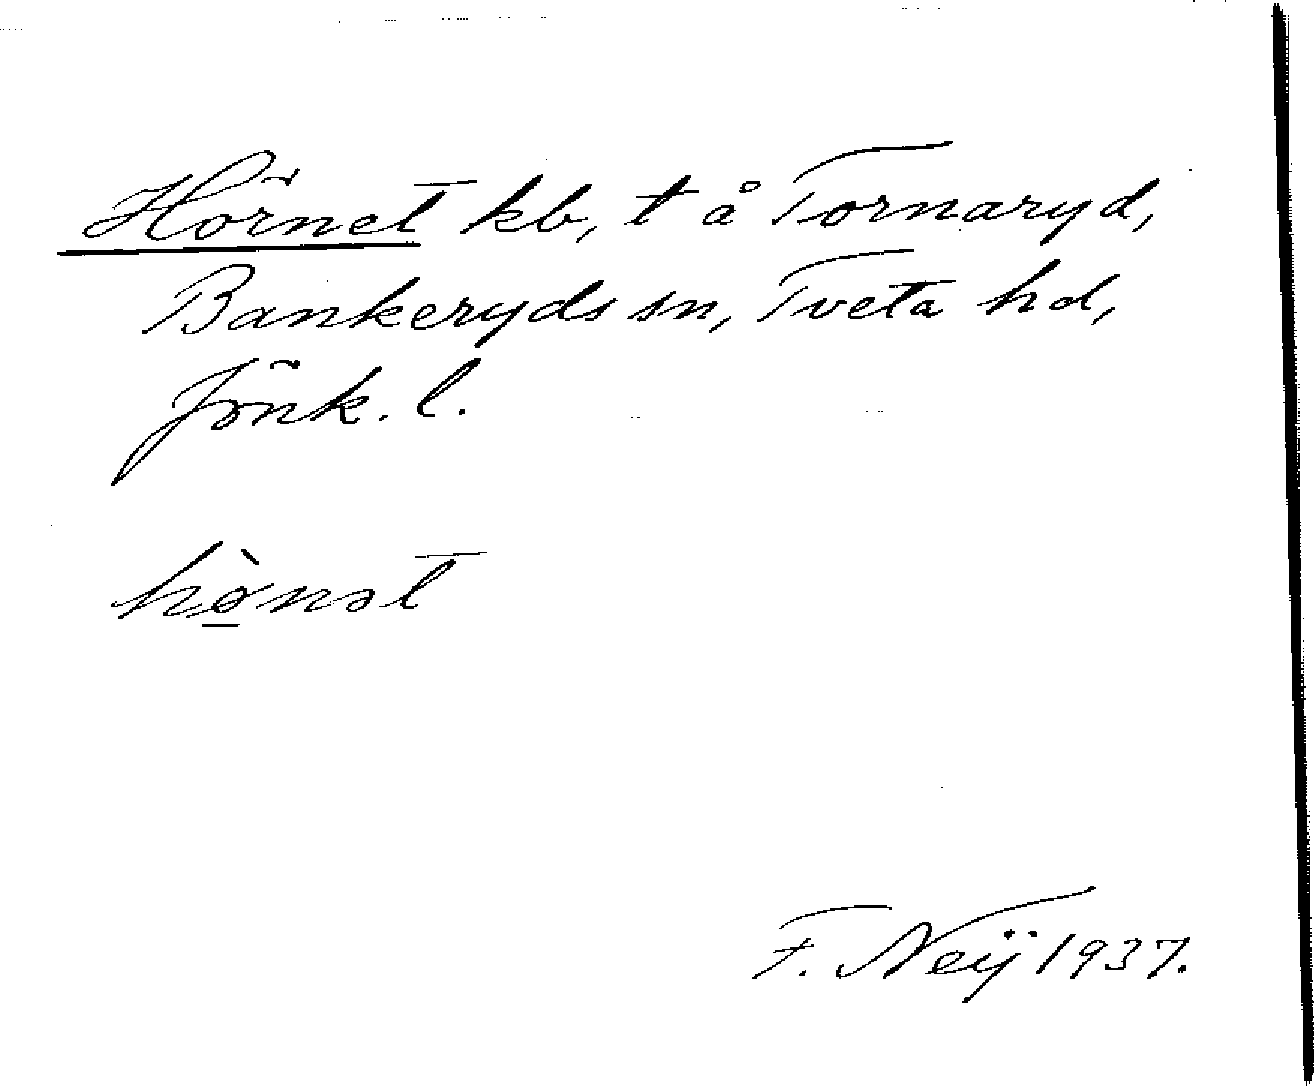 Hörnet kb, t å Tornaryd,
Bankeryds sn, Tveta hd,
Jönk. l.
hø̠̀nət
F. Neÿ 1937.